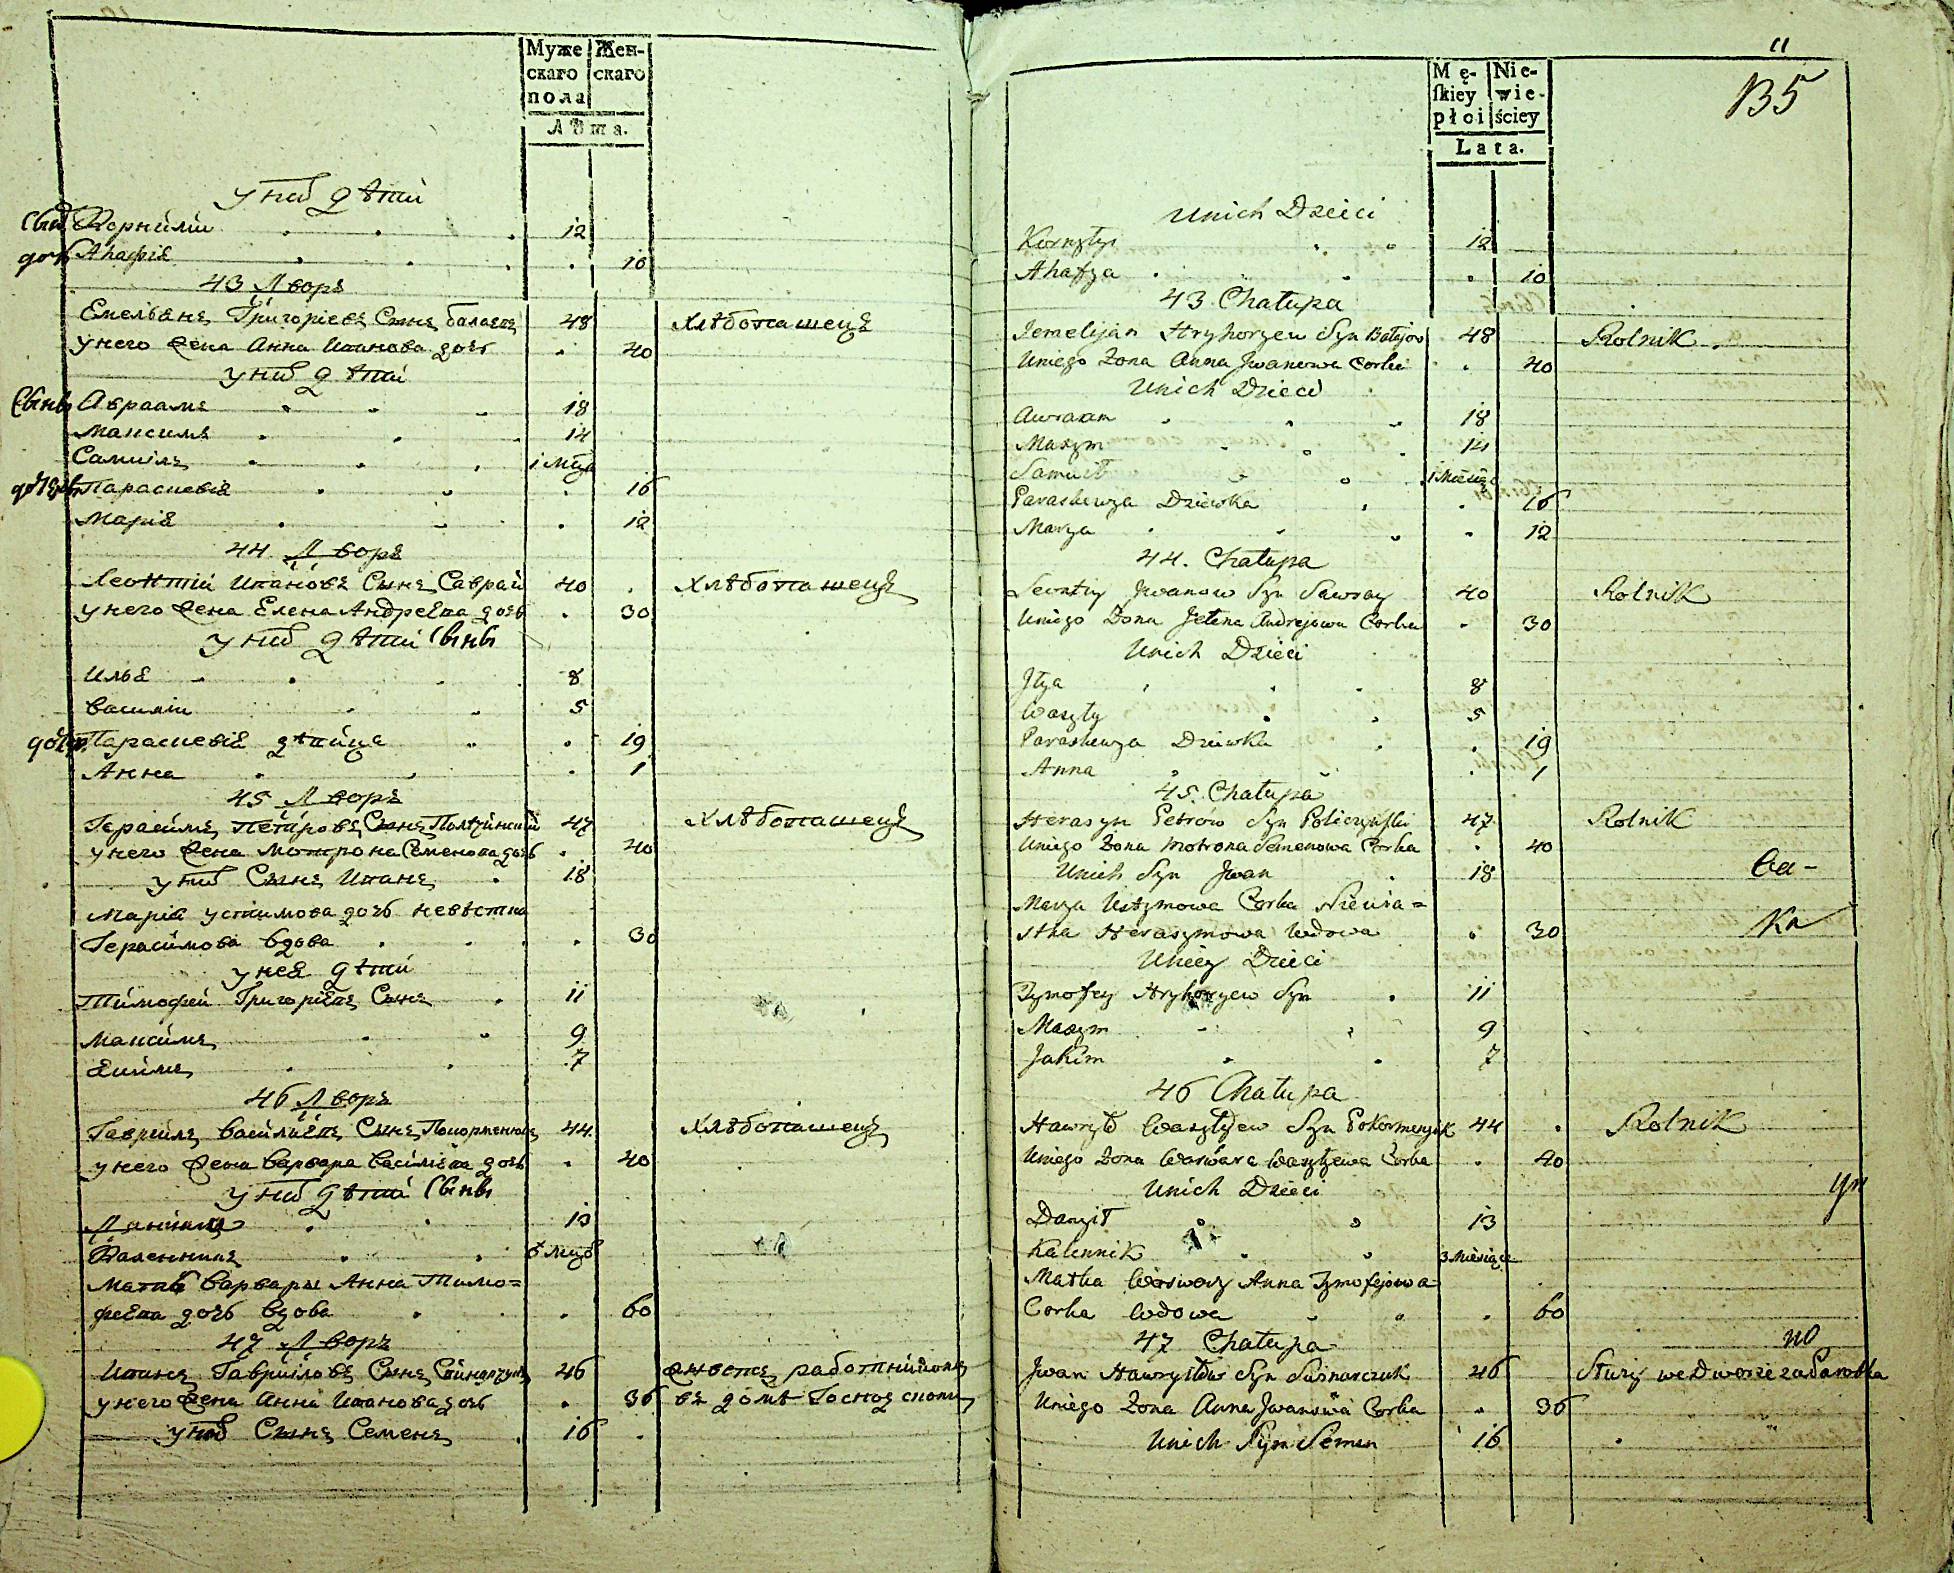 Муже Жен-
скаго скаго
пола
Лѣта.
у них дѣти
Сын Корнилий 12
дочь Агафія 10
43 Дворъ
Емельянъ Григорьевъ Сынъ Балаевъ 48 Хлѣбопашецъ
у него Жена Анна Иванова дочь 40
у них дѣти
Сыны Авраамъ 18
Максимъ 14
Самуилъ 1 мца
дочери Параскевія 16
Марія 12
44 Дворъ
Леонтій Ивановъ Сынъ Саврай 40 Хлѣбопашецъ
у него Жена Елена Андреева дочь 30
у них дѣти Сыны
Илья 8
Василій 5
дочери Параскевія дѣвица 19
Анна 1
45 Дворъ
Герасимъ Петровъ Сынъ 47 Хлѣбопашецъ
у него Жена Мотрона Семенова дочь 40
у них Сынъ Иванъ 18
Марія Устимова дочь невѣстка
Герасимова вдова 30
у нея дѣти
Тимофей Григорьевъ Сынъ 11
Максимъ 9
Якимъ 7
46 Дворъ
Гаврилъ Васильевъ Сынъ 44 Хлѣбопашецъ
у него Жена Варвара Васильева дочь 40
у них дѣти Сыны
Данилъ 13
Каленникъ мцов
Матка Варвары Анна Тимо=
феева дочь вдова 60
47 Дворъ
Иванъ Гавриловъ Сынъ 46 живетъ работникомъ
у него Жена Анна Иванова дочь 36 въ домѣ Господском
у них Сынъ Семенъ 16
11
B5
Mę- Nie-
ſkiey wie-
płoi ściey
Lata.
Unich Dzieci
Kornyły 12
Ahafya 10
43 Chałupa
Jemelyan Hryhoryew Syn Bałajow 48 Rolnik
Uniego Zona Anna Jwanowa Corka 40
Unich Dzieci
Awraam 18
Maxym 14
Samuił 1 Miesiąc
Paraskewya Dziewka 16
Marya 12
44. Chałupa
Leontiy Jwanow Syn Sawray 40 Rolnik
Uniego Zona Jelena Andrejowa Corka 30
Unich Dzieci
Jlya 8
Wasyly 5
Paraskewya Dziewka 19
Anna 1
45. Chałupa
Herasym Petrow Syn 47 Rolnik
Uniego Zona Motrona Semenowa Corka 40
Unich Syn Jwan 18
Marya Ustymowa Corka Niewia=
stka Herasymowa Wdowa 30
Uniey Dzieci
Tymofey Hryhoryew Syn 11
Maxym 9
Jakim 7
46 Chałupa
Hawrył Wasylyew Syn Pokormeyak 44 Rolnik
Uniego Zona Warwara Wasylyewa Corka 40
Unich Dzieci
Danyił 13
Kalennik 3 Miesiące
Matka Warwary Anna Tymofejowa
Corka Wdowa 60
47 Chałupa
Jwan Hawryłow Syn 46 Służy we Dworze za Parobka
Uniego Zona Anna Jwanowa Corka 36
Unich Syn Semen 16